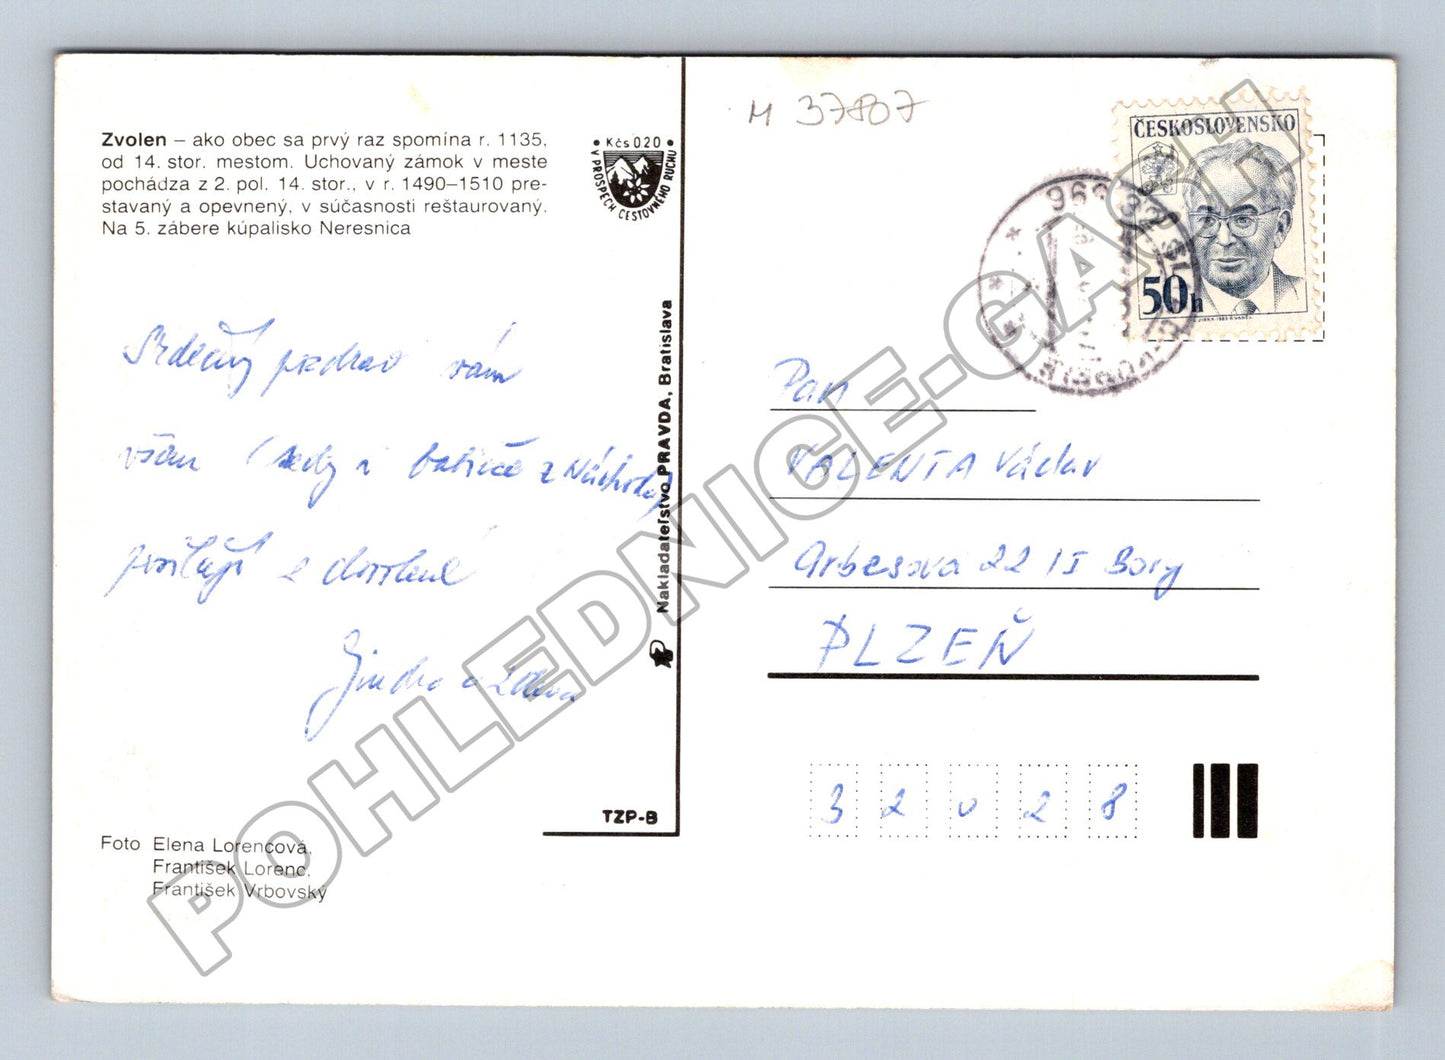 Zvolen – ako obec sa prvý raz spomína r. 1135,
od 14. stor. mestom. Uchovaný zámok v meste
pochádza z 2. pol. 14. stor., v r. 1490–1510 pre-
stavaný a opevnený, v súčasnosti reštaurovaný.
Na 5. zábere kúpalisko Neresnica
• Kčs 0.20 •
V PROSPECH CESTOVNÉHO RUCHU
Srdečný pozdrav vám
všem (tedy i babičce z Náchoda)
posílají z dovolené
Jindra a
Foto Elena Lorencová,
František Lorenc,
František Vrbovský
Nakladateľstvo PRAVDA, Bratislava
TZP-B
M 37807
ČESKOSLOVENSKO
50h
Pan
VALENTA Václav
Arbesova 22 II Bory
PLZEŇ
32028
POHLEDNICE-GASH